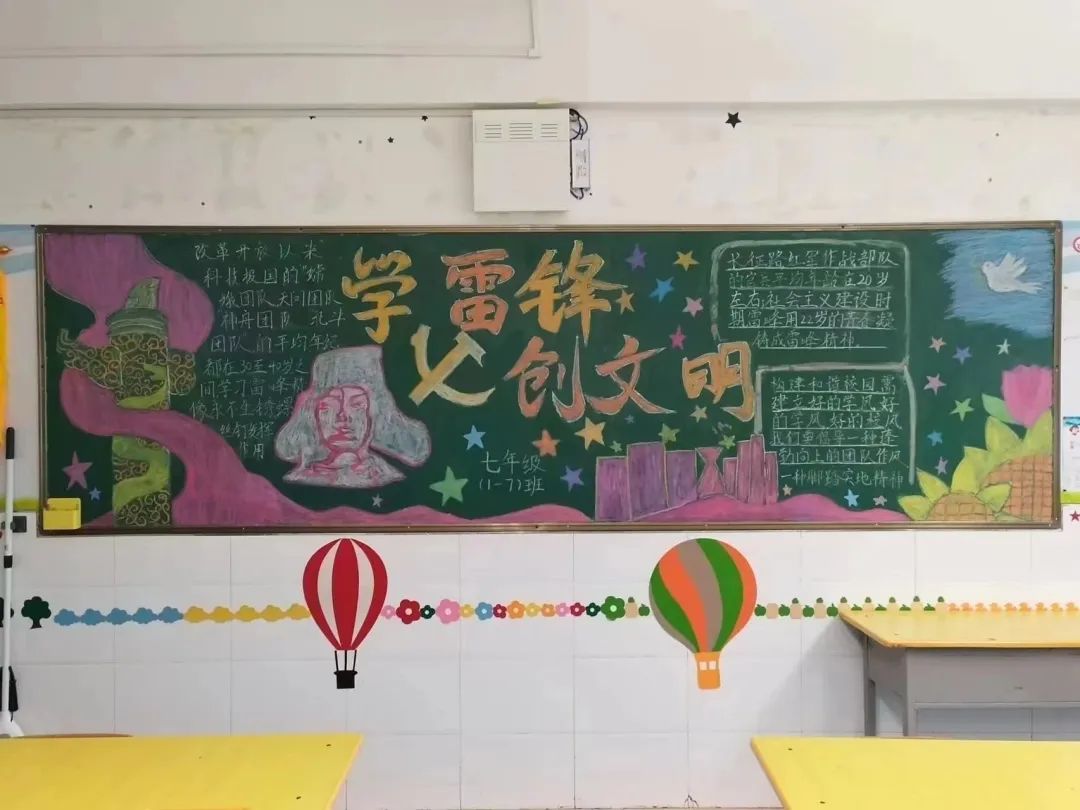 改革开放以来
科技报国的"嫦
娥团队天问团队
神舟团队 北斗
团队的平均年纪
都在30至40岁之
间学习雷锋精
像永不生锈螺
丝钉发挥
作用
学雷锋
创文明
七年级
(1-7)班
长征路红军作战部队
20岁
左右社会主义建设时
期雷锋用22岁的青春凝
铸成雷锋精神
构建和谐校园需
建立好的学风好
的学风好的校风
我们要倡导一种连
动向上的团队作风
一种脚踏实地精神